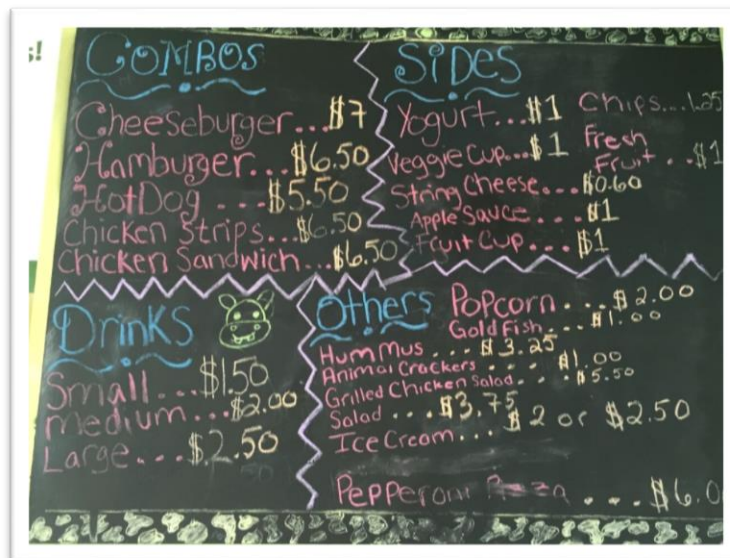 s!
COMBOS
Cheeseburger...$7
Hamburger...$6.50
HotDog ...$5.50
Chicken Strips...$6.50
Chicken Sandwich...$6.50
SiDes
Yogurt...$1
Veggie Cup...$1
String Cheese...$0.60
Apple Sauce...$1
Fruit Cup...$1
Chips...1.25
Fresh
Fruit..$1
Drinks
Small...$1.50
medium...$2.00
Large...$2.50
Others
Popcorn....$2.00
Gold Fish....$1.00
Hummus...$3.25
Animal Crackers....$1.00
Grilled Chicken Salad...$5.50
Salad...$3.75
Ice Cream...$2 or $2.50
Pepperoni Pizza...$6.0